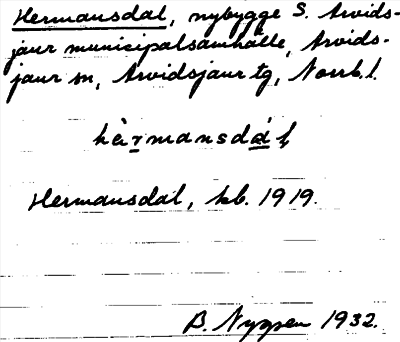 Hermansdal, nybygge S. Arvids-
jaur municipalsamhälle, Arvids-
jaur sn, Arvidsjaur tg, Norrb. l.
hèrmansdál,
Hermansdal, kb. 1919.
B. Nygren 1932.